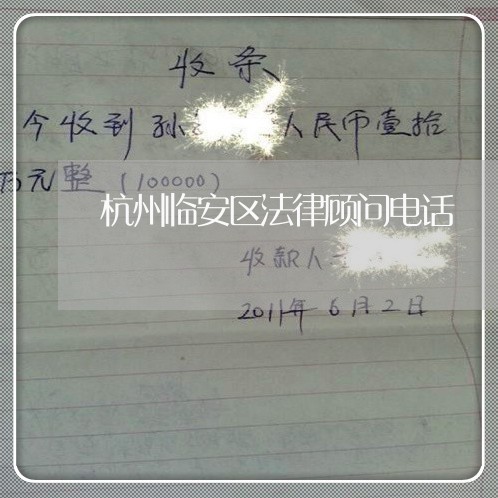 收条
今收到孙 人民币壹拾
万元整(100000)
杭州临安区法律顾问电话
收款人
2011年6月2日